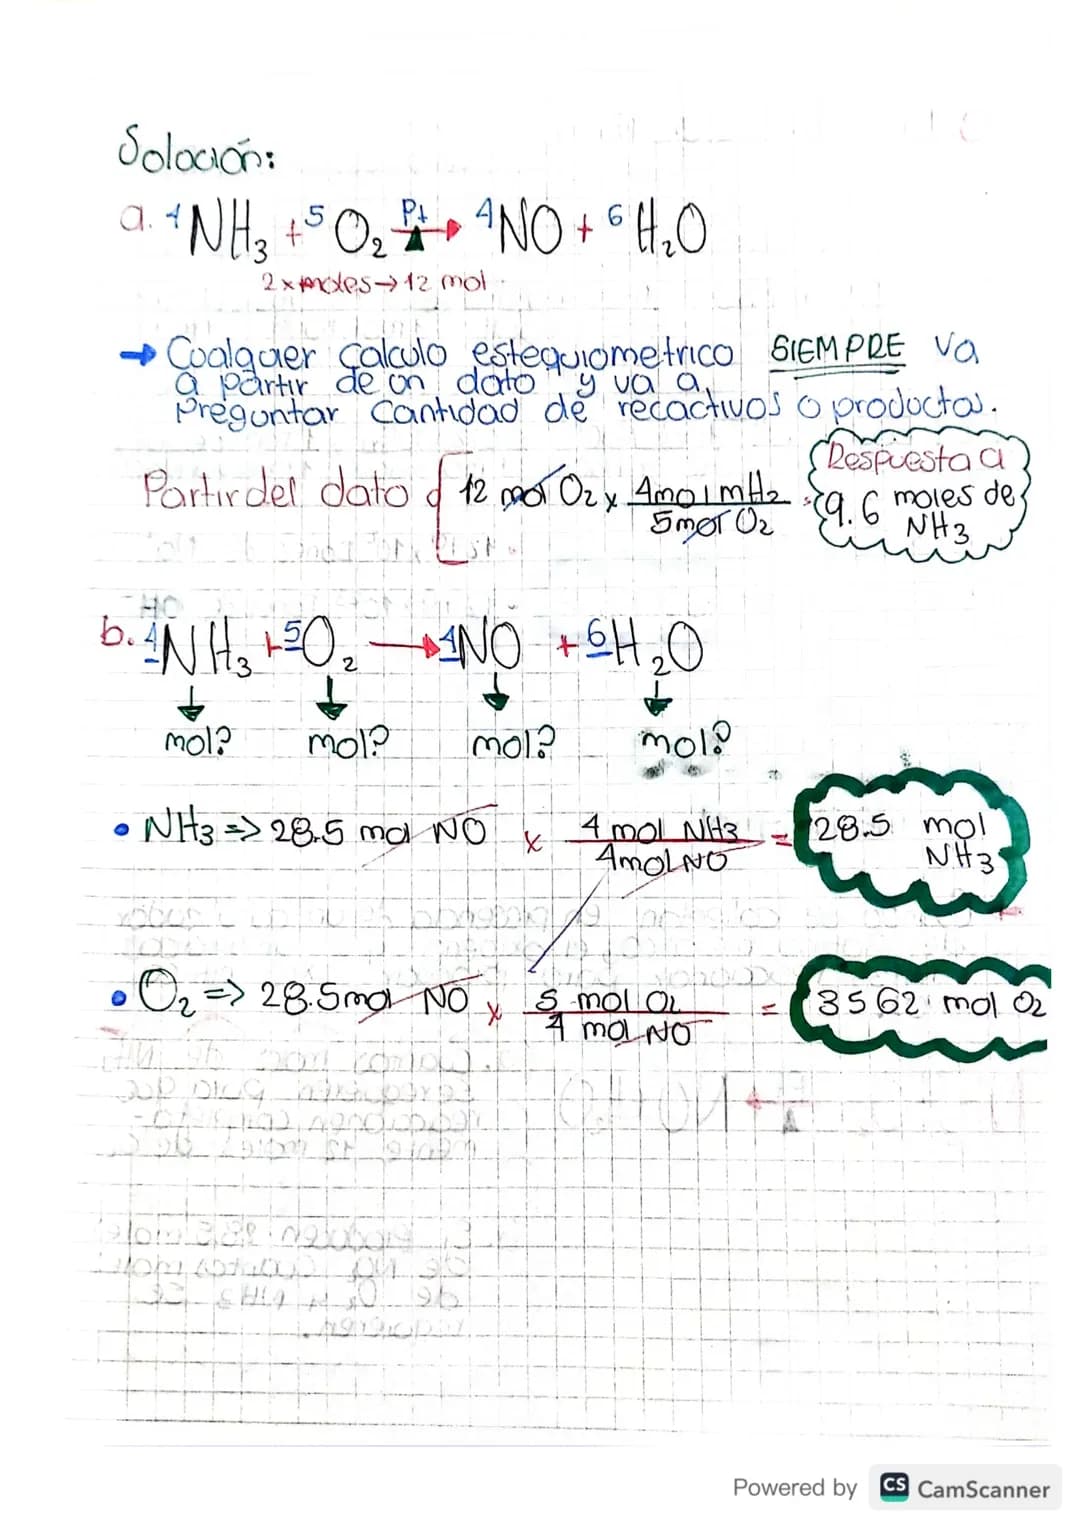 Solución:
a. 4NH3 + 5O2 Pt → 4NO + 6H2O
2x moles → 12 mol
→ Cualquier calculo estequiometrico SIEMPRE va
a partir de un dato y va a
Preguntar Cantidad de recactivos o productos.
Partir del dato [12 mol O2 x 4mol mH2 / 5mol O2 =
Respuesta a
9.6 moles de
NH3
b. 4NH3 + 5O2 → 4NO + 6H2O
mol? mol? mol? mol?
• NH3 => 28.5 mol NO x 4 mol NH3 / 4mol NO = 28.5 mol NH3
• O2 => 28.5mol NO x 5 mol O2 / 4 mol NO = 3562 mol O2
Powered by CS CamScanner